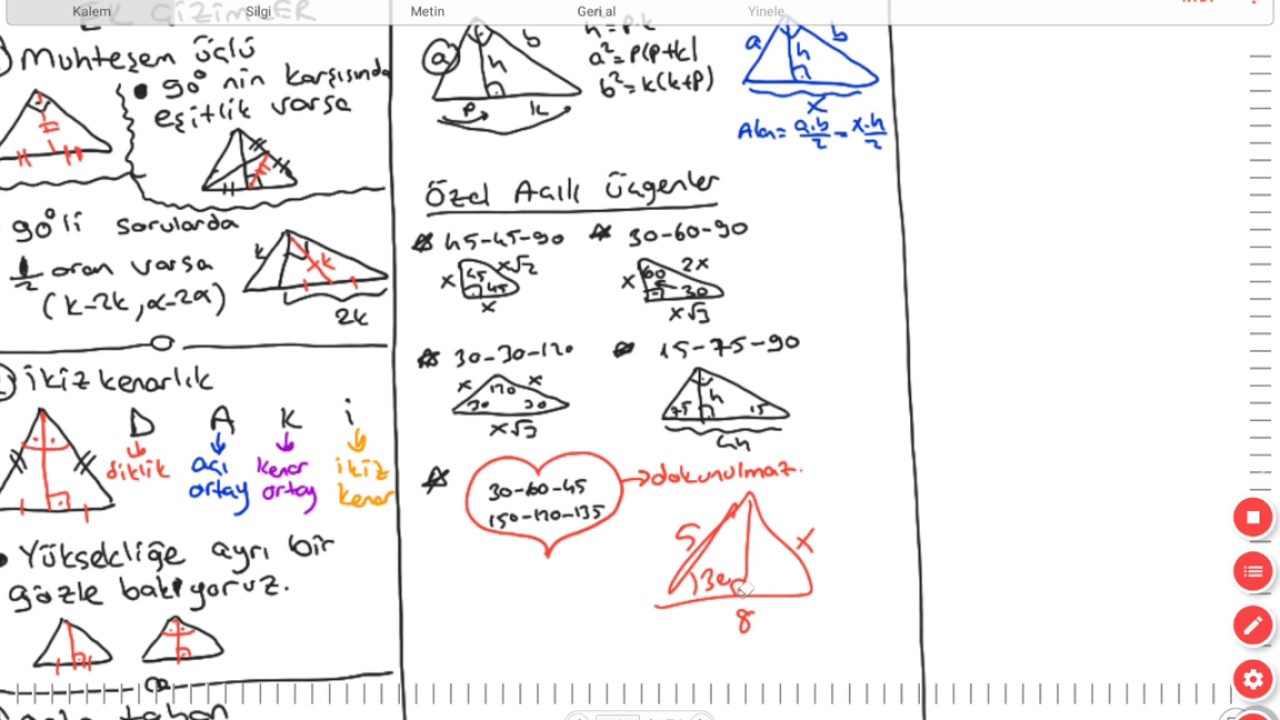 Kalem
Silgi
Metin
Geri al
Yinele
ÇİZİMLER
Muhteşem üçlü
• 90° nin karşısında
eşitlik varsa
90° li sorularda
1/2 oran varsa
(k-2k, α-2α)
k
k
2k
İkizkenarlık
D A K İ
diklik
açı
ortay
kenar
ortay
ikiz
kenar
• Yüksekliğe ayrı bir
gözle bakıyoruz.
taban
a
b
h
p
k
h²=p.k
a²=p(p+k)
b²=k(k+p)
a
b
h
x
Alan=a.b/2=x.h/2
Özel Açılı Üçgenler
45-45-90
30-60-90
x
45
x√2
45
x
x
60
2x
30
x√3
30-30-120
15-75-90
x
120
x
30
30
x√3
75
h
15
4h
30-60-45
150-120-135
→dokunulmaz.
5
x
30
8